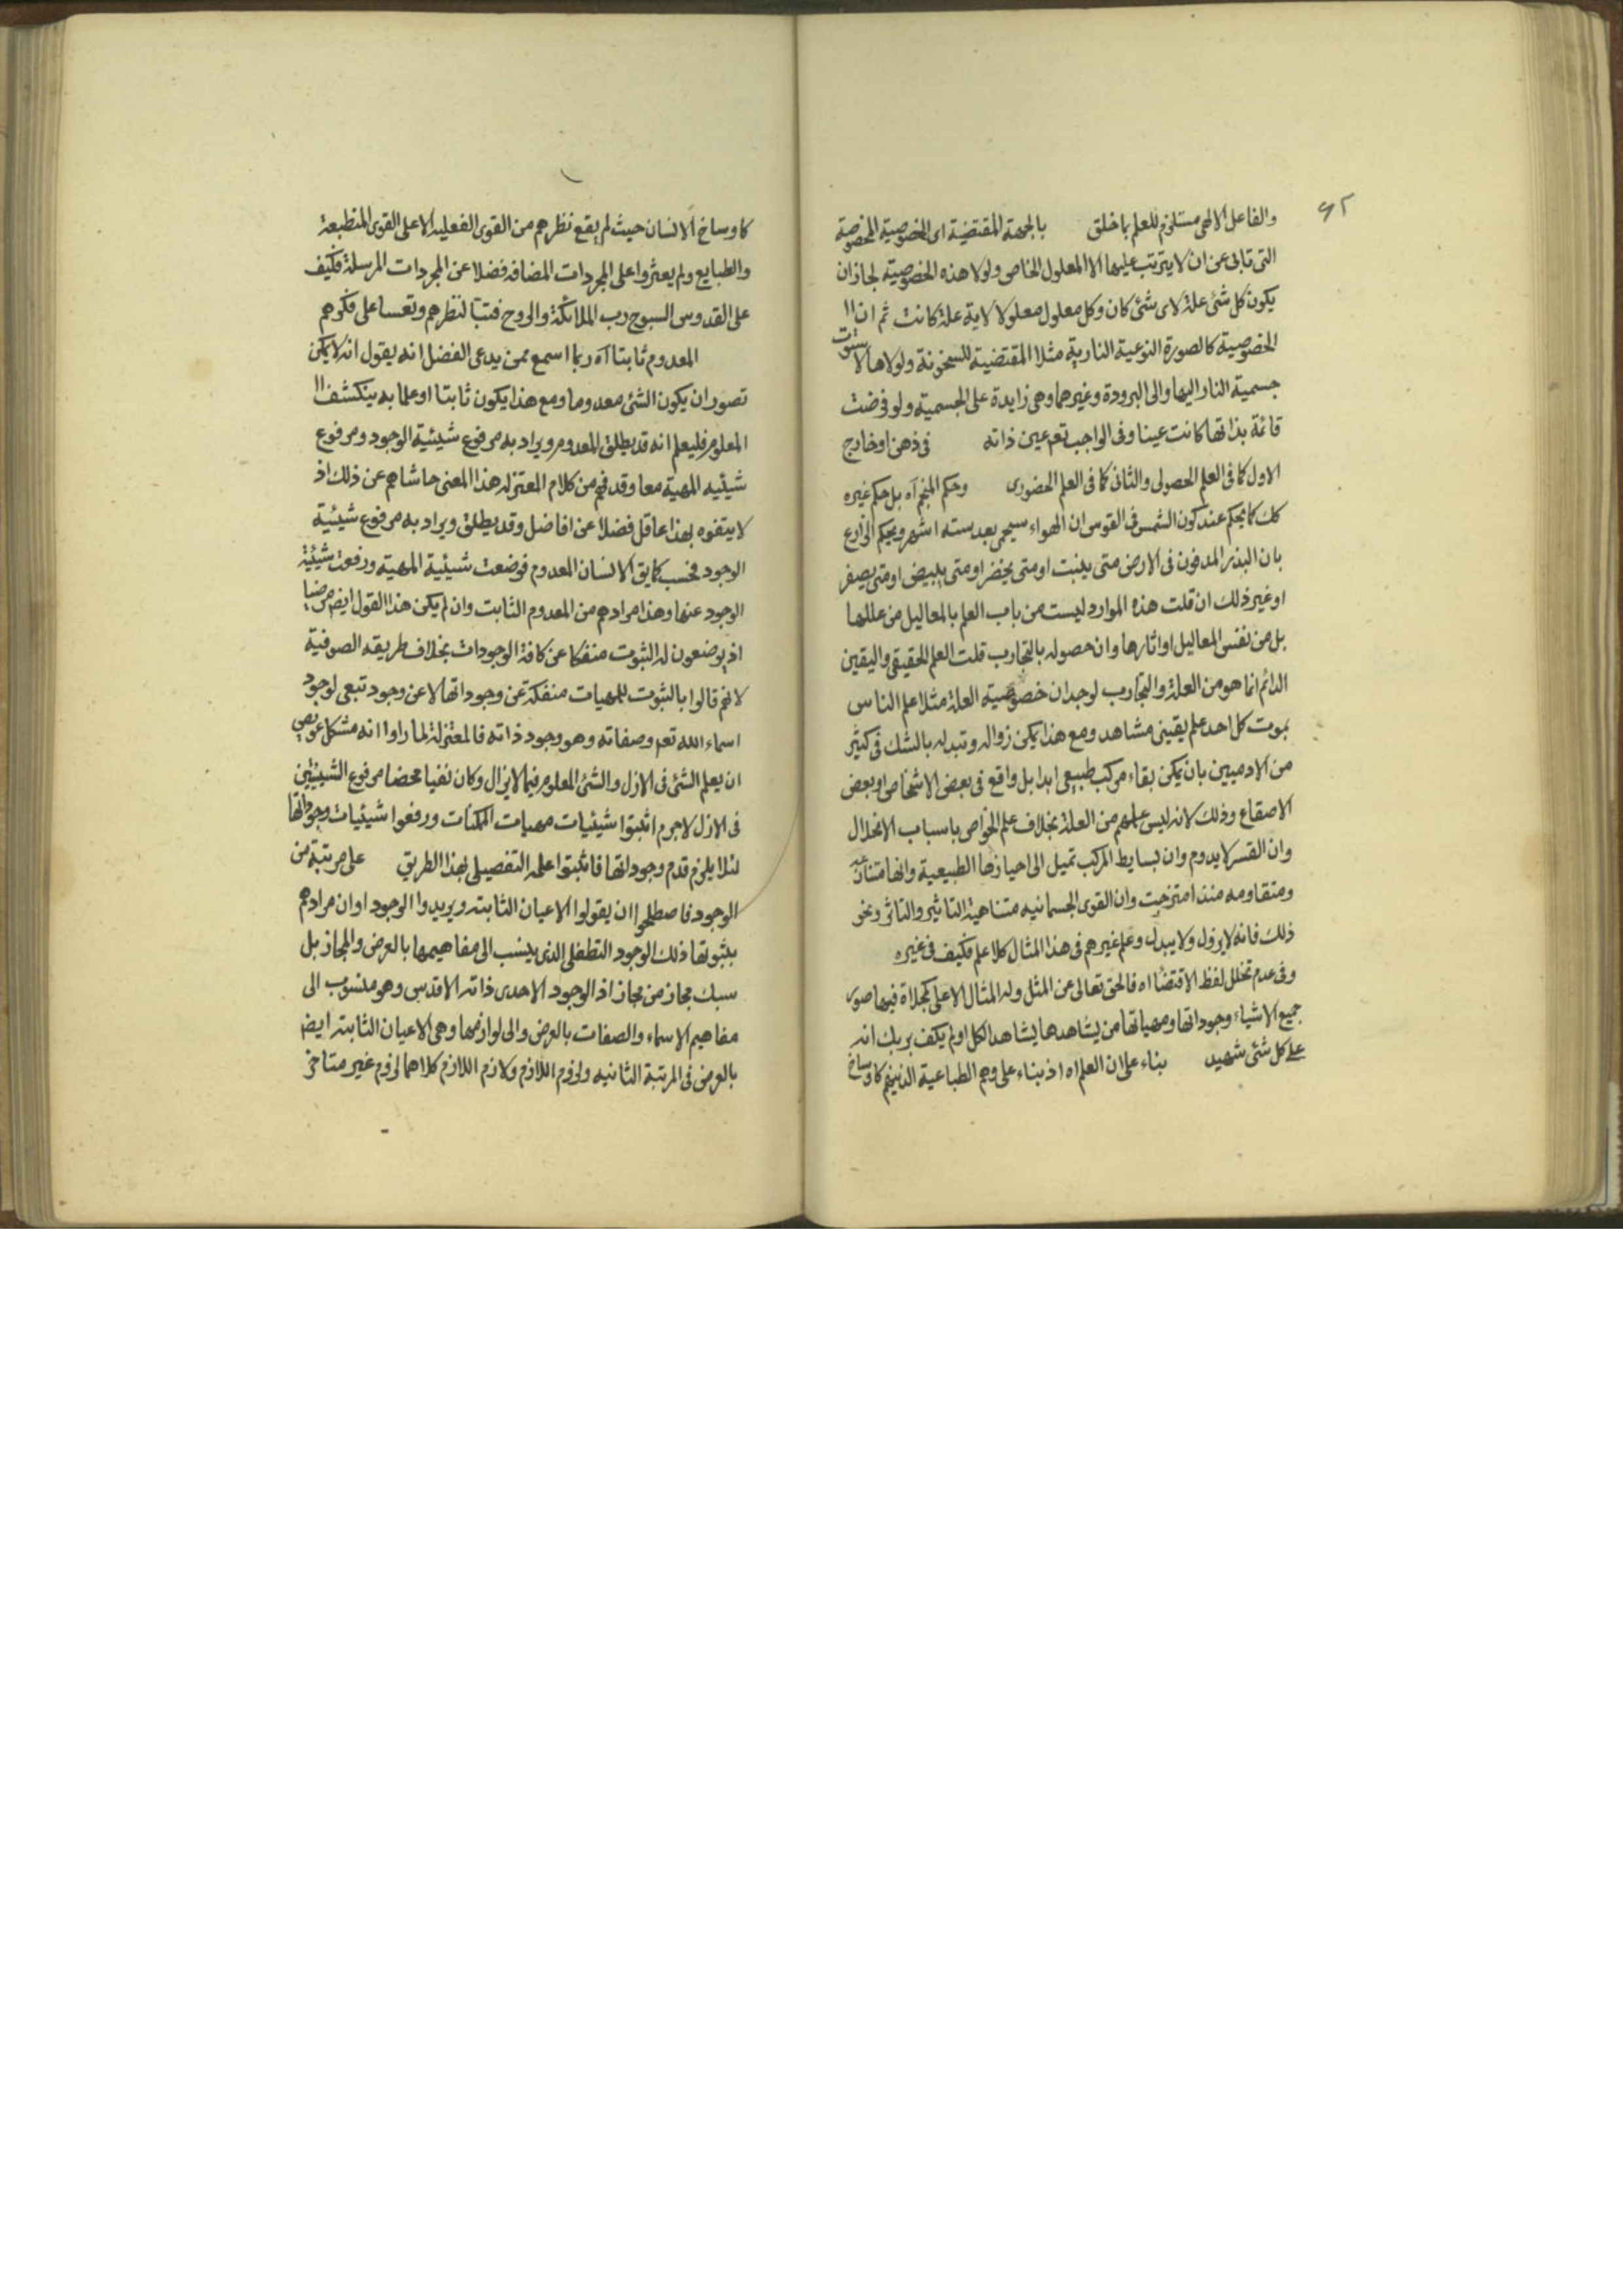 ٩٢
والفاعل الالهى مستلزم للعلم بما خلق بالجهة المقتضية اى الخصوصية المخصوصة
التى تابى عن ان لا يترتب عليها الا المعلول الخاص ولولا هذه الخصوصية لجاز ان
يكون كل شئ علة لاى شئ كان وكل معلول معلولا لاية علة كانت ثم ان اا
الخصوصية كالصورة النوعية النارية مثلا المقتضية للسخونة ولولاها لا ستوت
جسمية النار اليها والى البرودة وغيرهما وهى زايدة على الجسمية ولو فرضت
قائمة بذاتها كانت عينا وفى الواجب تعم عين ذاته فى ذهن او خارج
الاول كما فى العلم الحصولى والثانى كما فى العلم الحضورى وحكم المنجم آه بل حكم غيره
كك كما يحكم عند كون الشمس فى القوس ان الهواء سيحمى بعد سته اشهر ويحكم الزارع
بان البذر المدفون فى الارض متى ينبت او متى يخضر او متى يبيض او متى يصفر
او غير ذلك ان قلت هذه الموارد ليست من باب العلم بالمعاليل من عللها
بل من نفس المعاليل او اثارها وان حصوله بالتجارب قلت العلم الحقيقى واليقين
الدائم انما هو من العلة والتجارب لوجدان خصوصية العلة مثلا علم الناس
بموت كل احد علم يقينى مشاهد ومع هذا يمكن زواله وتبدله بالشك فى كثير
من الادميين بان يمكن بقاء مركب طبيعى ابدا بل واقع فى بعض الاشخاص او بعض
الاصقاع وذلك لانه ليس علمهم من العلة بخلاف علم الخواص باسباب الانحلال
وان القسر لا يدوم وان بسايط المركب تميل الى احيازها الطبيعية وانها متنازعه
ومتقاومه منذ امتزجت وان القوى الجسمانيه متناهية التاثير والتاثر ونحو
ذلك فانه لا يزول ولا يبدل وعلم غيرهم فى هذا المثال كلا علم فكيف فى غيره
وفى عدم تخلل لفظ الاقتضا اه فالحق تعالى عن المثل وله المثال الاعلى كمجلاة فيها صور
جميع الاشياء وجوداتها ومهياتها من يشاهدها يشاهد الكل او لم يكف بربك انه
على كل شئ شهيد بناء على ان العلم اه اذ بناء على وهم الطباعية الذينهم كاوساخ
كاوساخ الانسان حيث لم يقع نظرهم من القوى الفعليه الا على القوى المنطبعة
والطبايع ولم يعثروا على المجردات المضافه فضلا عن المجردات المرسلة فكيف
على القدوس السبوح رب الملائكة والروح فتبا لنظرهم وتعسا على فكرهم
المعدوم ثابتا آه ربما اسمع ممن يدعى الفضل انه يقول انه لا يمكن
تصور ان يكون الشئ معدوما ومع هذا يكون ثابتا او علما به ينكشف اا
المعلوم فليعلم انه قد يطلق المعدوم ويراد به مرفوع شيئية الوجود ومرفوع
شيئيه المهية معا وقد فهم من كلام المعتزله هذا المعنى حاشاهم عن ذلك اذ
لا يتفوه بهذا عاقل فضلا عن افاضل وقد يطلق ويراد به مرفوع شيئية
الوجود فحسب كما يق الانسان المعدوم فوضعت شيئية المهية ورفعت شيئية
الوجود عنها وهذا مرادهم من المعدوم الثابت وان لم يكن هذا القول ايض مرضيا
اذ يوضعون له الثبوت منفكا عن كافة الوجودات بخلاف طريقه الصوفية
لانهم قالوا بالثبوت للمهيات منفكة عن وجوداتها لا عن وجود تبعى لوجود
اسماء الله تعم وصفاته وهو وجود ذاته فالمعتزلة لما راوا انه مشكل عويص
ان يعلم الشئ فى الازل والشئ المعلوم فيما لا يزال وكان نفيا محضا مرفوع الشيئيتين
فى الازل لا جرم اثبتوا شيئيات مهيات الممكنات ورفعوا شيئيات وجوداتها
لئلا يلزم قدم وجوداتها فاثبتوا علمه التفصيلى بهذا الطريق على مرتبة من
الوجود فاصطلحوا ان يقولوا الاعيان الثابته ويريدوا الوجود او ان مرادهم
بثبوتها ذلك الوجود التطفلى الذى ينسب الى مفاهيمها بالعرض والمجاز بل
سبك مجاز من مجاز اذ الوجود الاحدى ذاته الاقدس وهو منسوب الى
مفاهيم الاسماء والصفات بالعرض والى لوازمها وهى الاعيان الثابته ايض
بالعرض فى المرتبة الثانيه ولزوم اللازم ولازم اللازم كلاهما لزوم غير متاخر